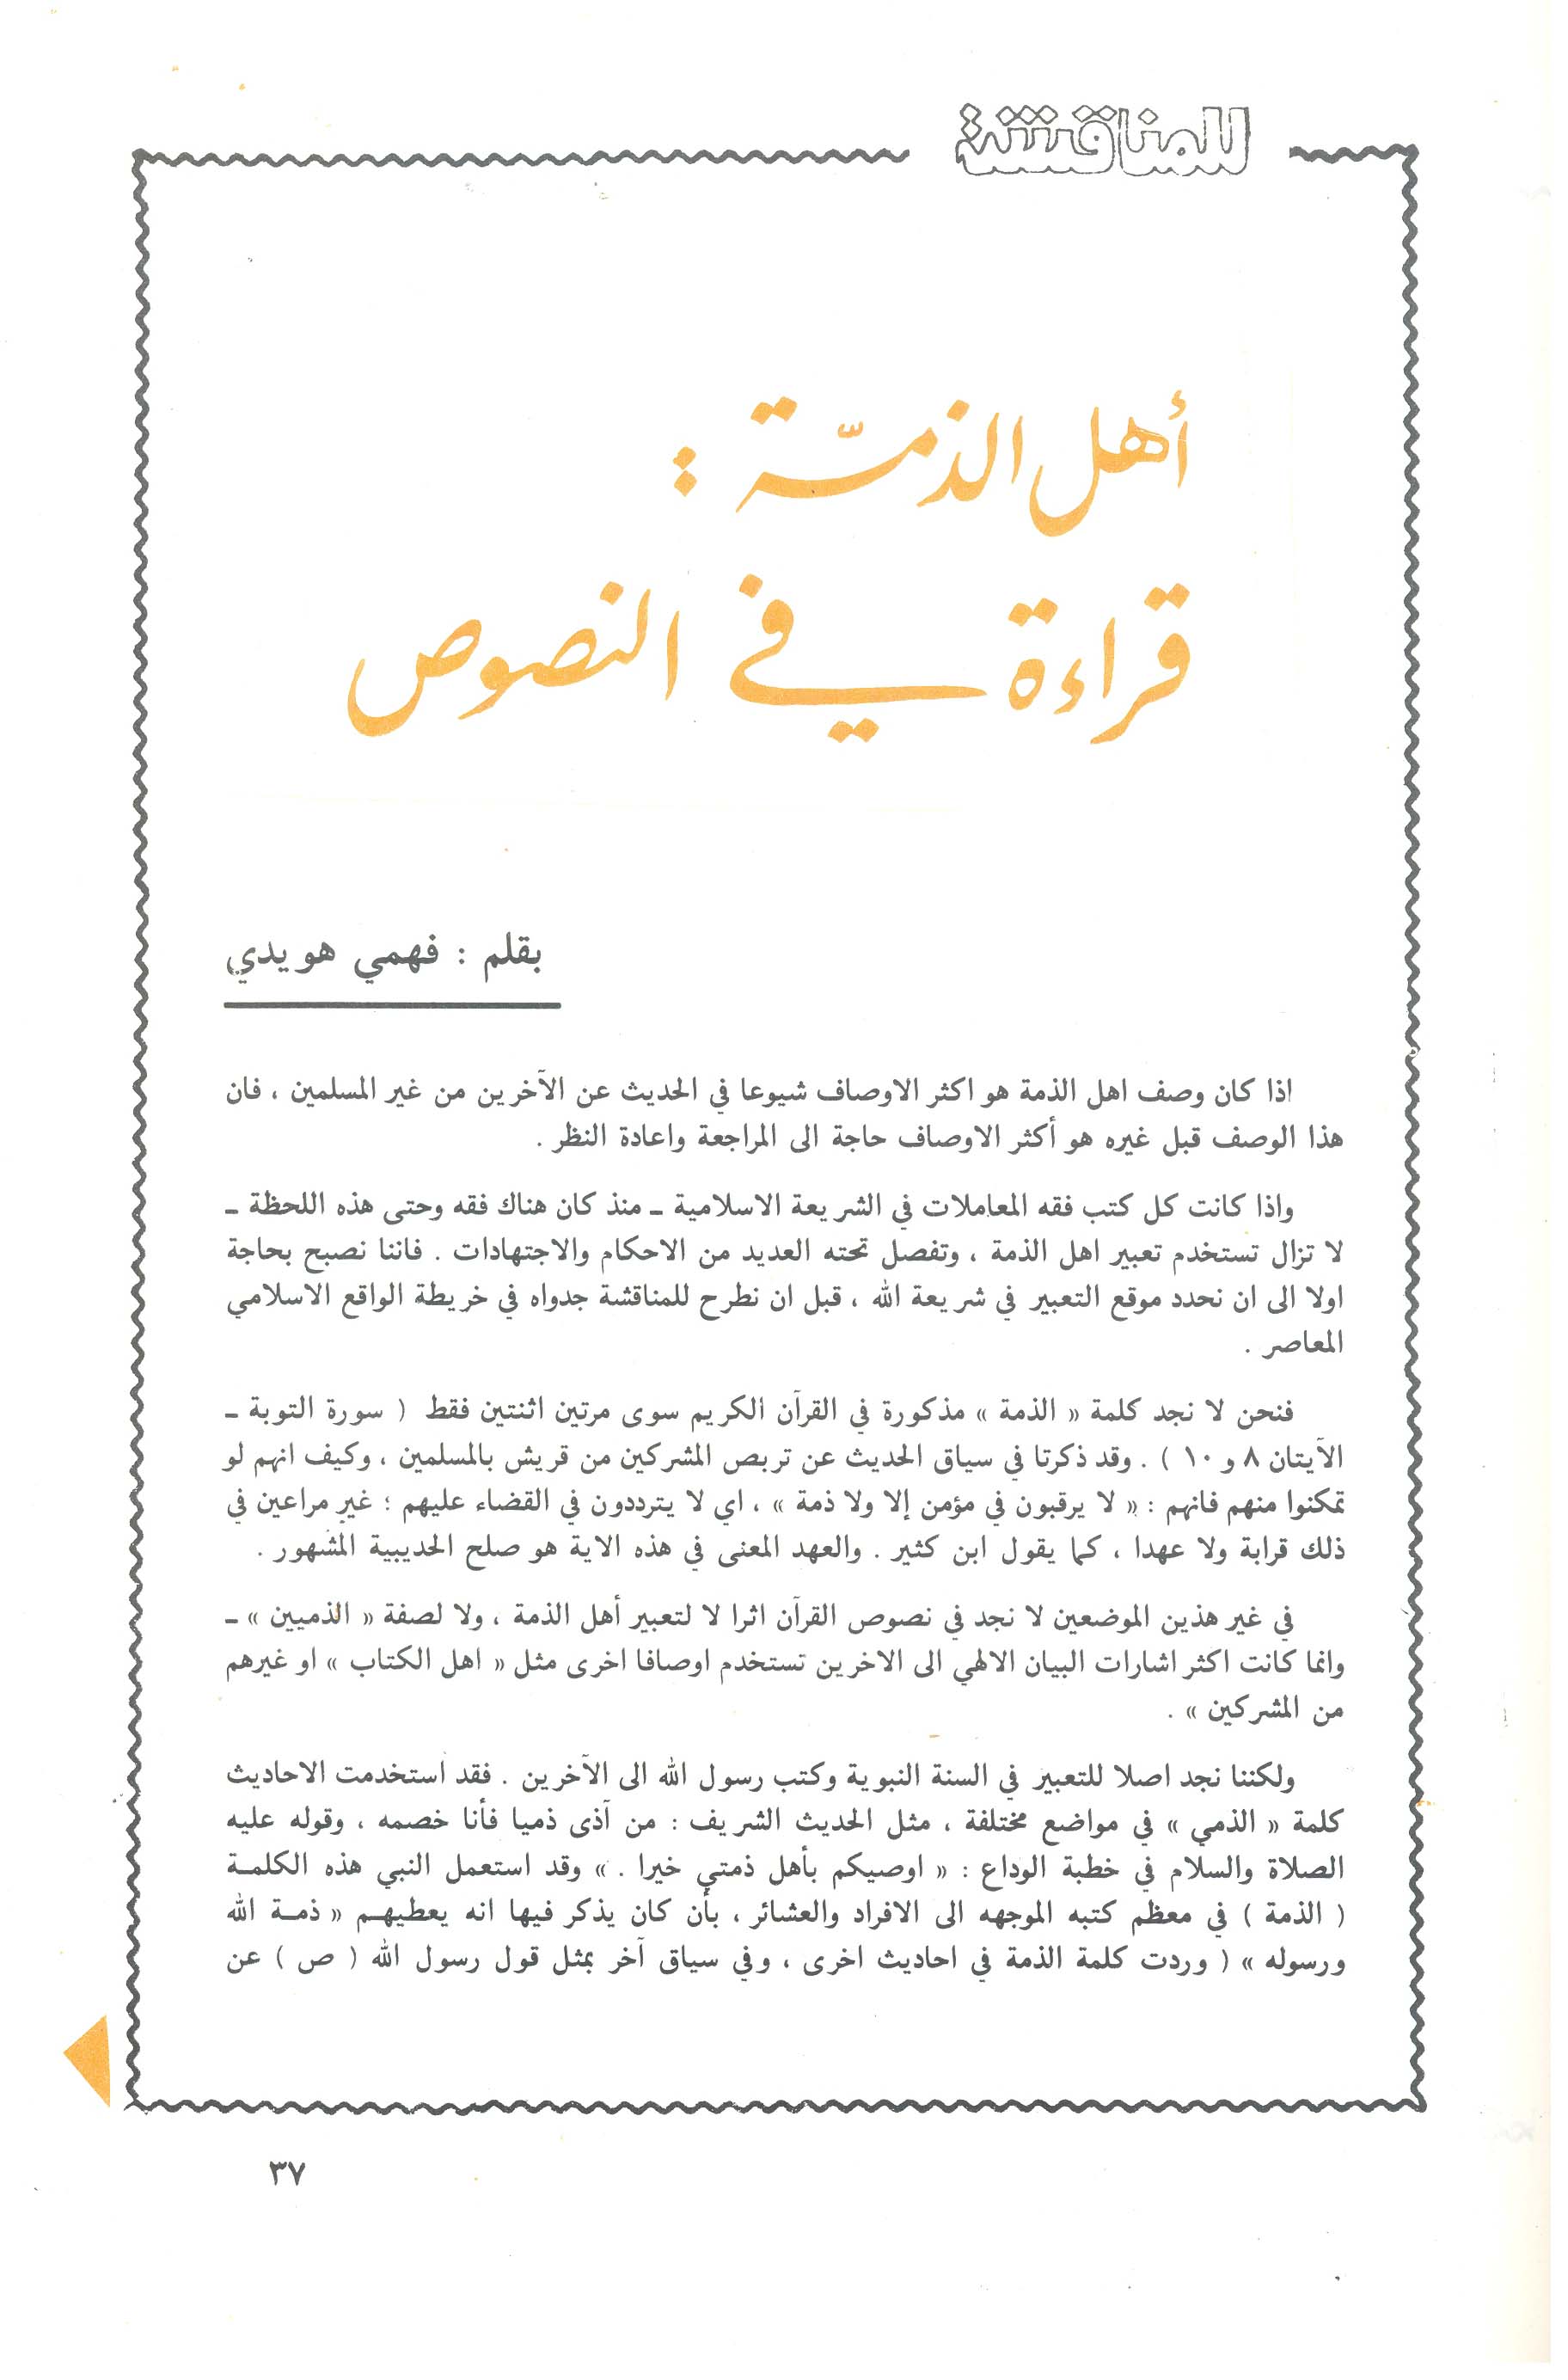 للمناقشة
أهل الذمّة :
قراءة في النصوص
بقلم : فهمي هويدي
اذا كان وصف اهل الذمة هو اكثر الاوصاف شيوعا في الحديث عن الآخرين من غير المسلمين ، فان
هذا الوصف قبل غيره هو أكثر الاوصاف حاجة الى المراجعة واعادة النظر .
واذا كانت كل كتب فقه المعاملات في الشريعة الاسلامية ـ منذ كان هناك فقه وحتى هذه اللحظة ـ
لا تزال تستخدم تعبير اهل الذمة ، وتفصل تحته العديد من الاحكام والاجتهادات . فاننا نصبح بحاجة
اولا الى ان نحدد موقع التعبير في شريعة الله ، قبل ان نطرح للمناقشة جدواه في خريطة الواقع الاسلامي
المعاصر .
فنحن لا نجد كلمة « الذمة » مذكورة في القرآن الكريم سوى مرتين اثنتين فقط ( سورة التوبة ـ
الآيتان ٨ و ١٠ ) . وقد ذكرتا في سياق الحديث عن تربص المشركين من قريش بالمسلمين ، وكيف انهم لو
تمكنوا منهم فانهم : « لا يرقبون في مؤمن إلا ولا ذمة » ، اي لا يترددون في القضاء عليهم ؛ غير مراعين في
ذلك قرابة ولا عهدا ، كما يقول ابن كثير . والعهد المعنى في هذه الاية هو صلح الحديبية المشهور .
في غير هذين الموضعين لا نجد في نصوص القرآن اثرا لا لتعبير أهل الذمة ، ولا لصفة « الذميين » ـ
وانما كانت اكثر اشارات البيان الالهي الى الاخرين تستخدم اوصافا اخرى مثل « اهل الكتاب » او غيرهم
من المشركين » .
ولكننا نجد اصلا للتعبير في السنة النبوية وكتب رسول الله الى الآخرين . فقد استخدمت الاحاديث
كلمة « الذمي » في مواضع مختلفة ، مثل الحديث الشريف : من آذى ذميا فأنا خصمه ، وقوله عليه
الصلاة والسلام في خطبة الوداع : « اوصيكم بأهل ذمتي خيرا . » وقد استعمل النبي هذه الكلمة
( الذمة ) في معظم كتبه الموجهه الى الافراد والعشائر ، بأن كان يذكر فيها انه يعطيهم « ذمة الله
ورسوله » ( وردت كلمة الذمة في احاديث اخرى ، وفي سياق آخر بمثل قول رسول الله ( ص ) عن
٣٧